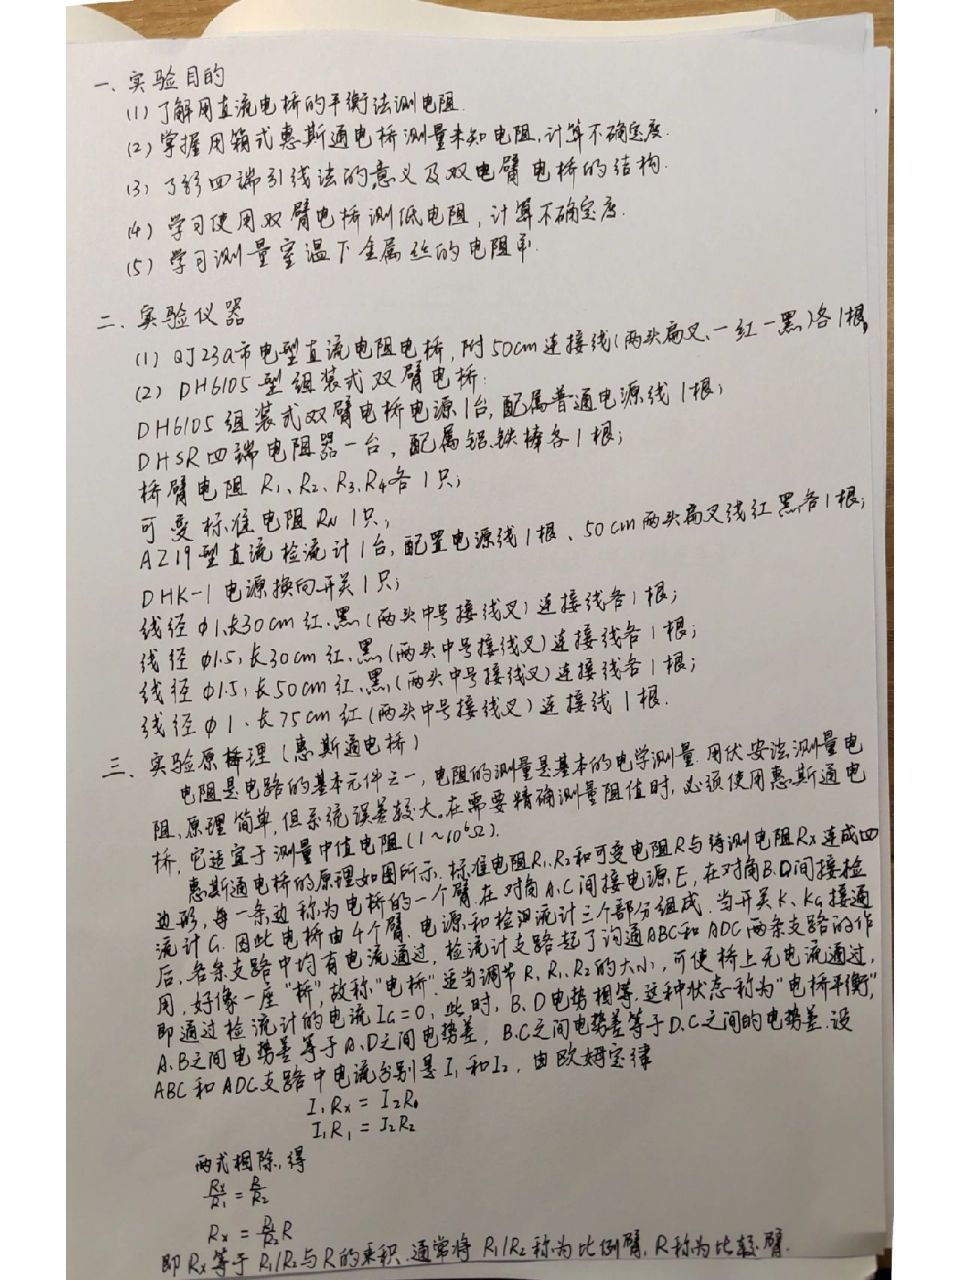 一、实验目的
(1) 了解用直流电桥的平衡法测电阻.
(2) 掌握用箱式惠斯通电桥测量未知电阻,计算不确定度.
(3) 了解四端引线法的意义及双电臂电桥的结构.
(4) 学习使用双臂电桥测低电阻,计算不确定度.
(5) 学习测量室温下金属丝的电阻率.
二、实验仪器
(1) QJ23a市电型直流电阻电桥,附50cm连接线(两头扁叉、一红一黑)各1根,
(2) DH6105型组装式双臂电桥:
DH6105组装式双臂电桥电源1台,配属普通电源线1根;
DHSR四端电阻器一台,配属铝、铁棒各1根;
桥臂电阻 R₁、R₂、R₃、R₄各1只;
可变标准电阻 RN 1只;
AZ19型直流检流计1台,配置电源线1根、50cm两头扁叉线红黑各1根;
DHK-1电源换向开关1只;
线径φ1、长30cm红、黑(两头中号接线叉)连接线各1根;
线径φ1.5,长30cm红、黑(两头中号接线叉)连接线各1根;
线径φ1.5,长50cm红、黑(两头中号接线叉)连接线各1根;
线径φ1、长75cm红(两头中号接线叉)连接线1根.
三、实验原理(惠斯通电桥)
电阻是电路的基本元件之一,电阻的测量是基本的电学测量.用伏安法测量电
阻,原理简单,但系统误差较大。在需要精确测量阻值时,必须使用惠斯通电
桥,它适宜于测量中值电阻(1~10⁶Ω).
惠斯通电桥的原理如图所示.标准电阻R₁、R₂和可变电阻R与待测电阻Rx连成四
边形,每一条边称为电桥的一个臂.在对角A.C间接电源E,在对角B.D间接检
流计G.因此电桥由4个臂、电源和检流计三个部分组成.当开关K、KG接通
后,各条支路中均有电流通过,检流计支路起了沟通ABC和ADC两条支路的作
用,好像一座"桥",故称"电桥".适当调节R、R₁、R₂的大小,可使桥上无电流通过,
即通过检流计的电流IG=0,此时,B、D电势相等.这种状态称为"电桥平衡",
A、B之间电势差等于A、D之间电势差,B、C之间电势差等于D、C之间的电势差.设
ABC和ADC支路中电流分别是I₁和I₂,由欧姆定律
I₁Rx = I₂R₀
I₁R₁ = I₂R₂
两式相除,得
Rx/R₁ = R/R₂
Rx = R₁/R₂ R
即Rx等于R₁/R₂与R的乘积.通常将R₁/R₂称为比例臂,R称为比较臂.